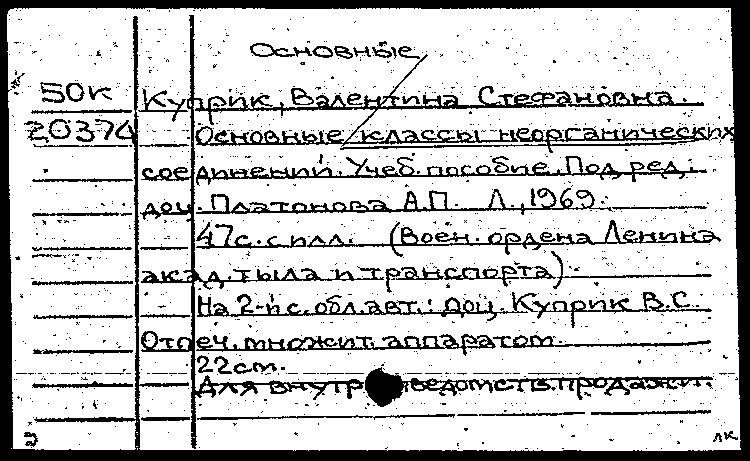 Основные
50к Куприк, Валентина Стефановна.
20374 Основные классы неорганических
соединений. Учеб. пособие. Под ред.
доц. Платонова А.П. Л., 1969.
47с. с илл. (Воен. ордена Ленина
акад. тыла и транспорта).
На 2-й с. обл. авт.: доц. Куприк В.С.
Отпеч. множит. аппаратом.
22см.
Для внутриведомств. продажи.
лк